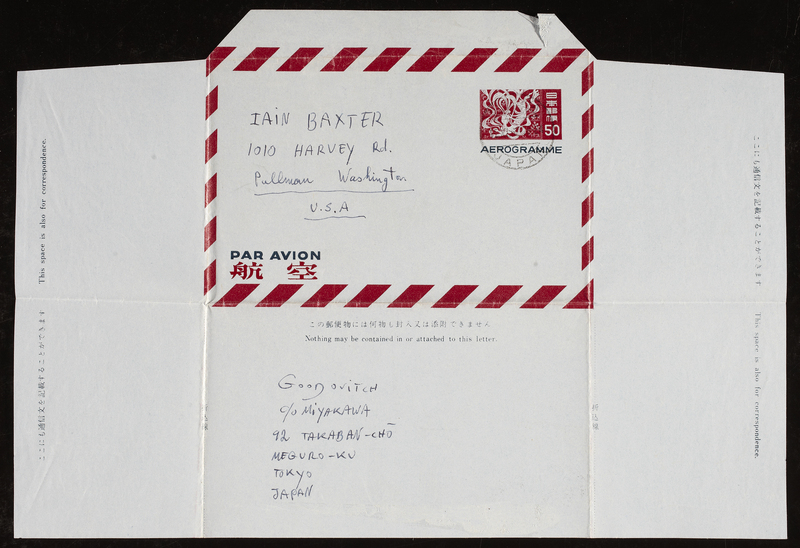 日本郵便
50
AEROGRAMME
JAPAN
IAIN BAXTER
1010 HARVEY Rd.
Pullman Washington
U.S.A
PAR AVION
航空
この郵便物には何物も封入又は添附できません
Nothing may be contained in or attached to this letter.
GOODOVITCH
c/o MIYAKAWA
92 TAKABAN-CHŌ
MEGURO-KU
TOKYO
JAPAN
This space is also for correspondence.
ここにも通信文を記載することができます
ここにも通信文を記載することができます
This space is also for correspondence.